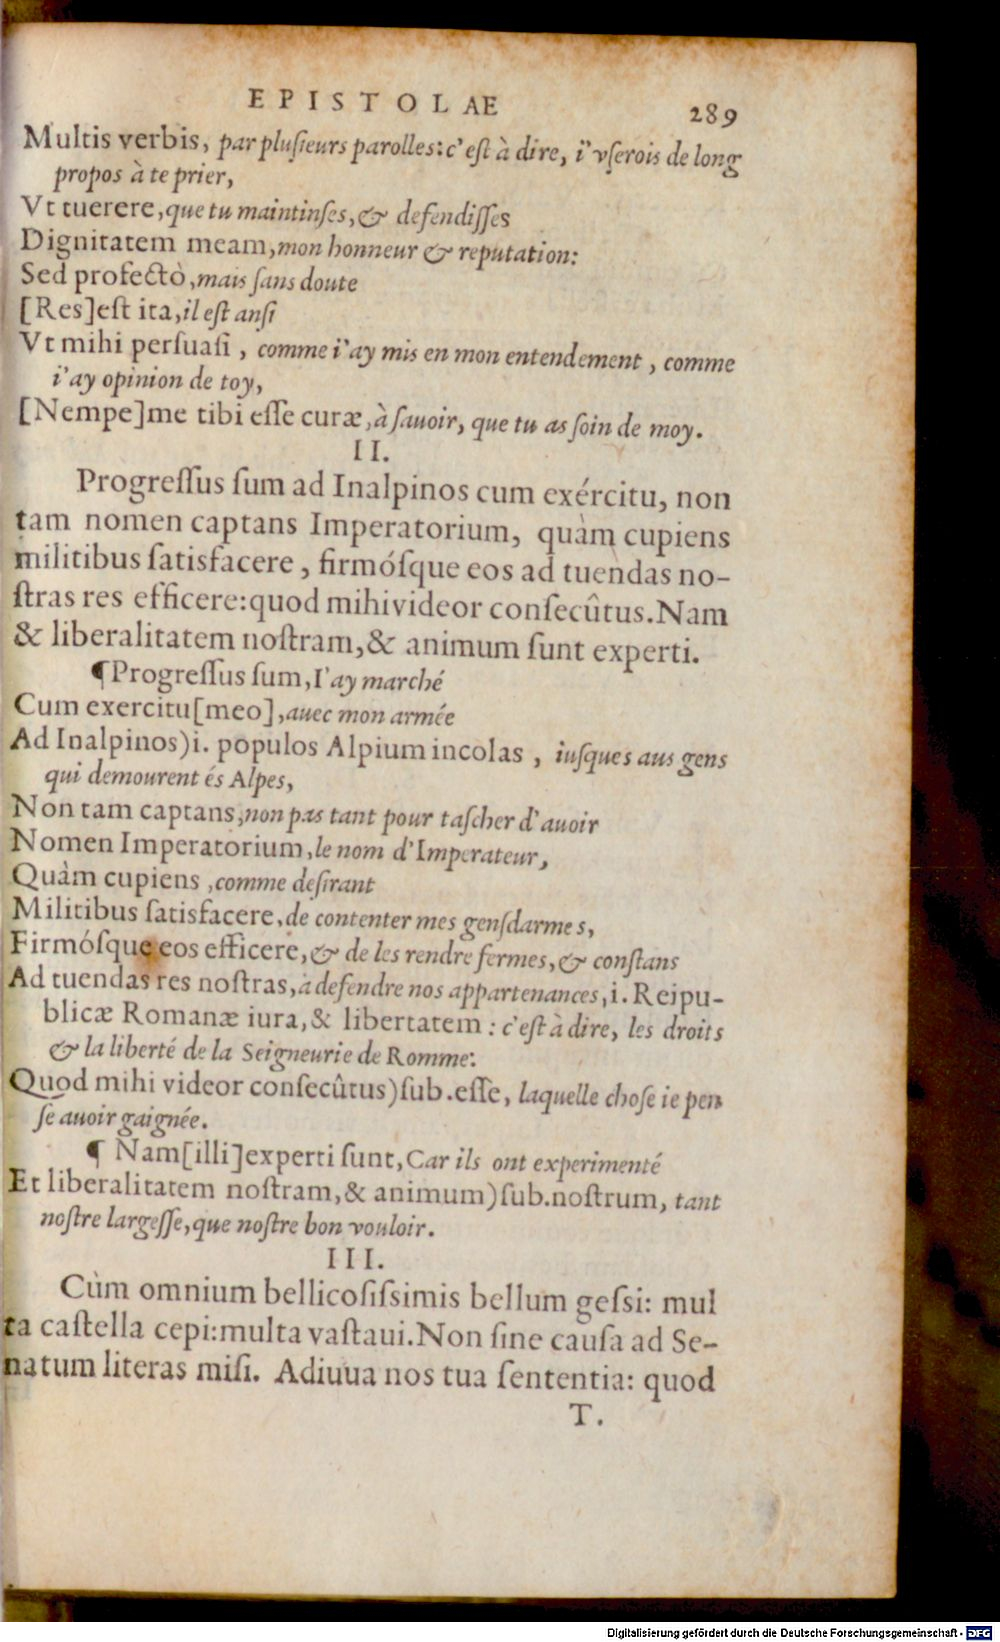 EPISTOLAE 289
Multis verbis, par pluſieurs parolles: c'eſt à dire, i'vſerois de long
propos à te prier,
Vt tuerere, que tu maintinſes, & defendiſſes
Dignitatem meam, mon honneur & reputation:
Sed profectò, mais ſans doute
[Res]eſt ita, il eſt anſi
Vt mihi perſuaſi, comme i'ay mis en mon entendement, comme
i'ay opinion de toy,
[Nempe]me tibi eſſe curæ, à ſauoir, que tu as ſoin de moy.
II.
Progreſſus ſum ad Inalpinos cum exércitu, non
tam nomen captans Imperatorium, quàm cupiens
militibus ſatisfacere, firmóſque eos ad tuendas no-
ſtras res efficere: quod mihi videor conſecûtus. Nam
& liberalitatem noſtram, & animum ſunt experti.
¶Progreſſus ſum, I'ay marché
Cum exercitu[meo], auec mon armée
Ad Inalpinos)i. populos Alpium incolas, iuſques aus gens
qui demourent és Alpes,
Non tam captans, non pas tant pour taſcher d'auoir
Nomen Imperatorium, le nom d'Imperateur,
Quàm cupiens, comme deſirant
Militibus ſatisfacere, de contenter mes genſdarmes,
Firmóſque eos efficere, & de les rendre fermes, & conſtans
Ad tuendas res noſtras, à defendre nos appartenances, i. Reipu-
blicæ Romanæ iura, & libertatem: c'eſt à dire, les droits
& la liberté de la Seigneurie de Romme:
Quod mihi videor conſecûtus)ſub. eſſe, laquelle choſe ie pen
ſe auoir gaignée.
¶ Nam[illi]experti ſunt, Car ils ont experimenté
Et liberalitatem noſtram, & animum)ſub. noſtrum, tant
noſtre largeſſe, que noſtre bon vouloir.
III.
Cùm omnium bellicoſiſsimis bellum geſsi: mul
ta caſtella cepi: multa vaſtaui. Non ſine cauſa ad Se-
natum literas miſi. Adiuua nos tua ſententia: quod
T.
Digitalisierung gefördert durch die Deutsche Forschungsgemeinschaft - DFG